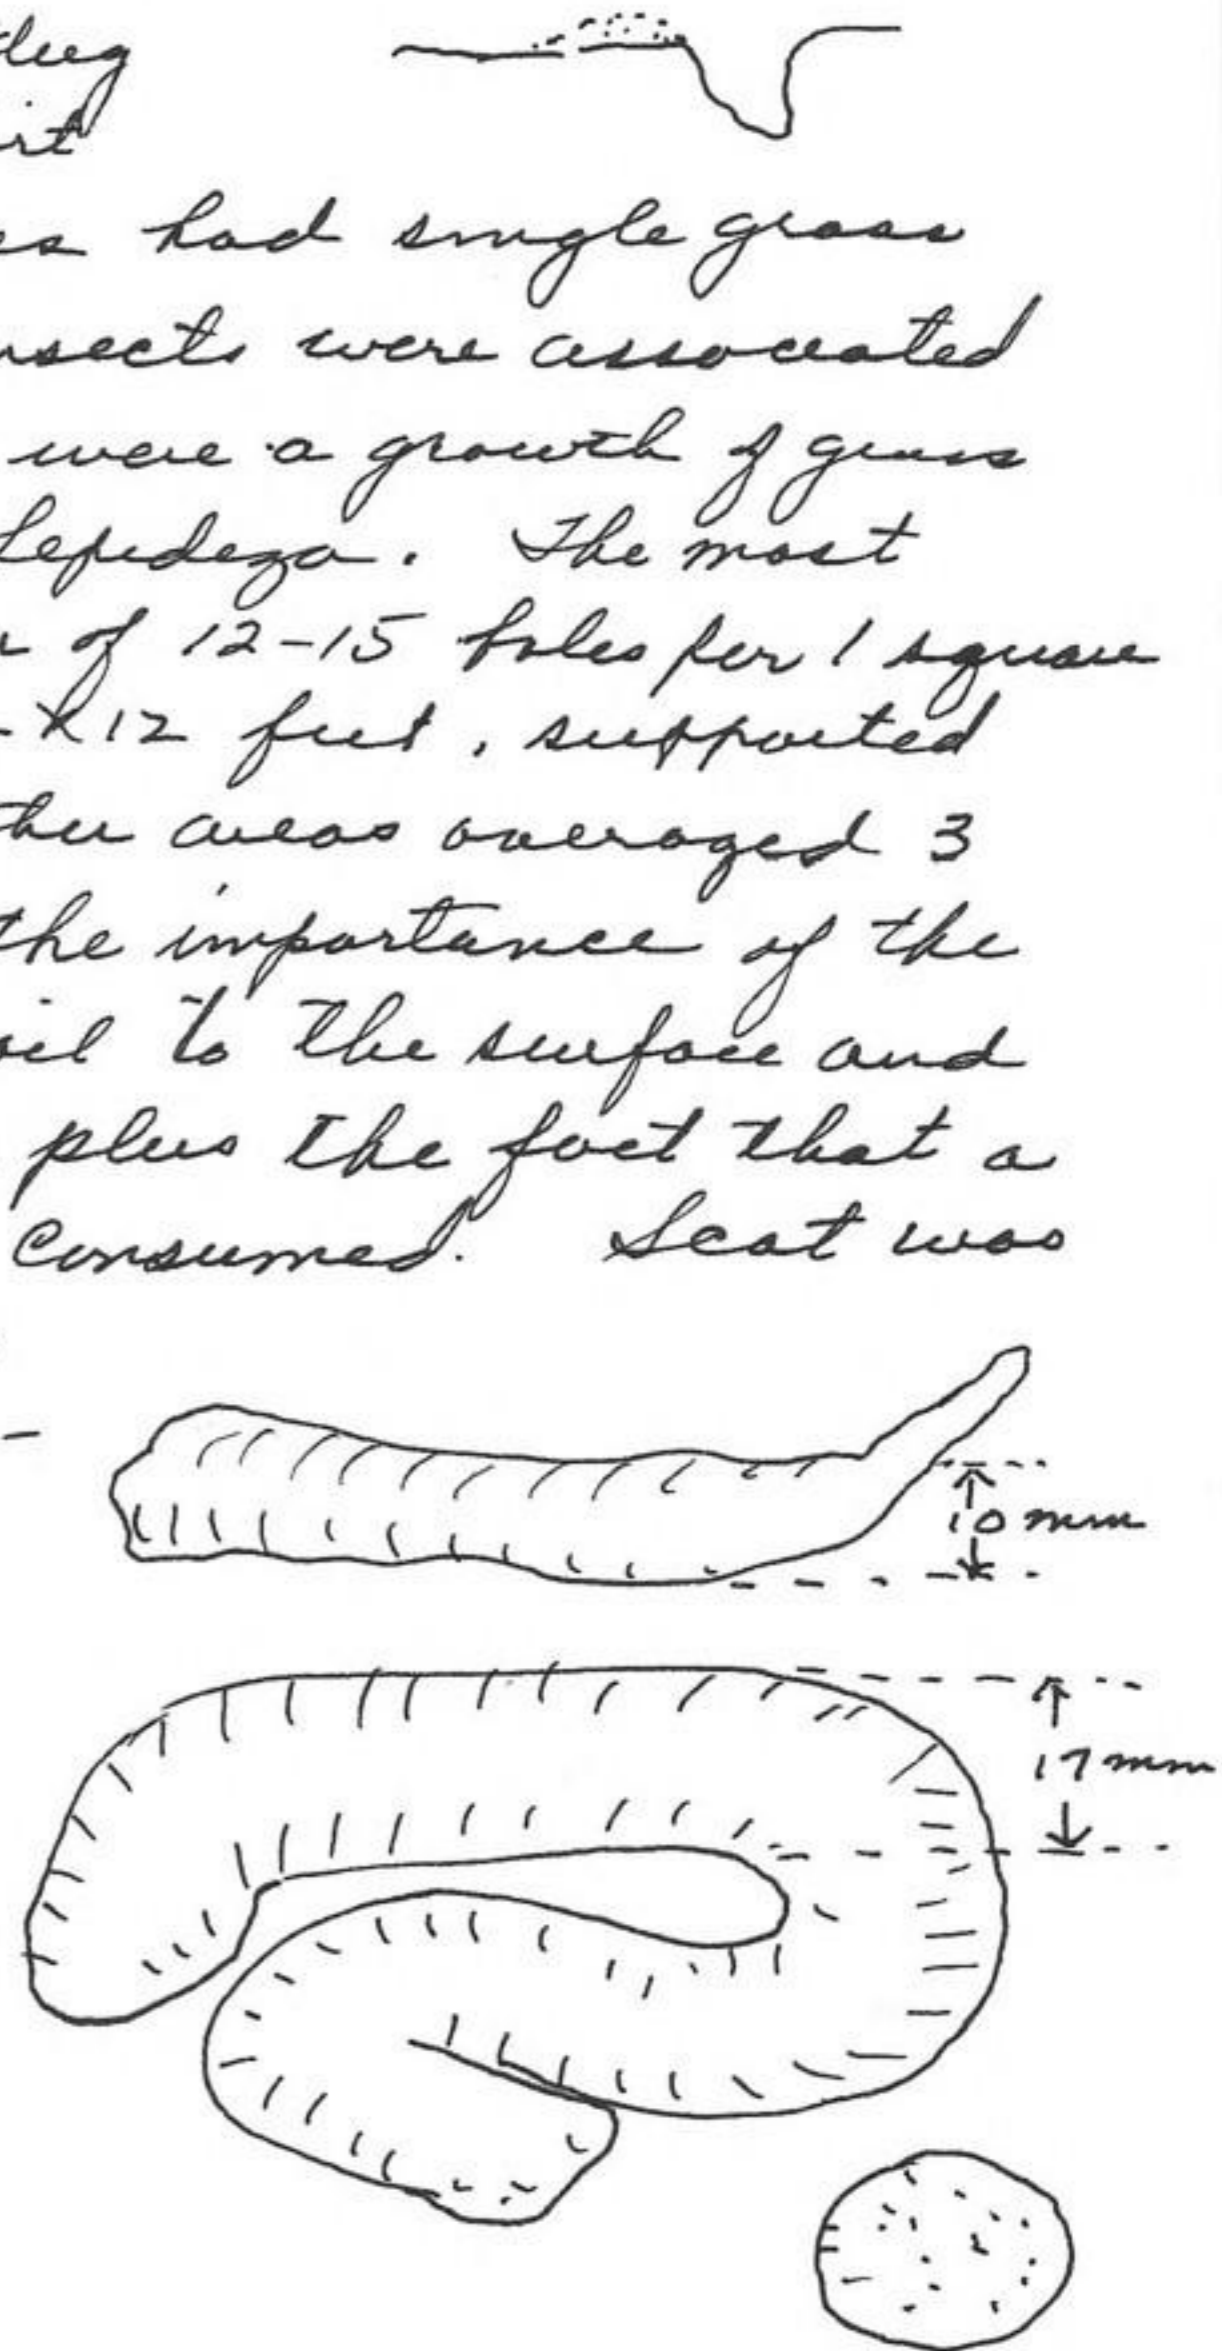 dug
irt
es had single grass
nsects were associated
were a growth of grass
Lepedeza. The most
of 12-15 holes per 1 square
x12 feet, supported
ther areas averaged 3
the importance of the
oil to the surface and
plus the fact that a
consumed. Scat was
10 mm
17 mm